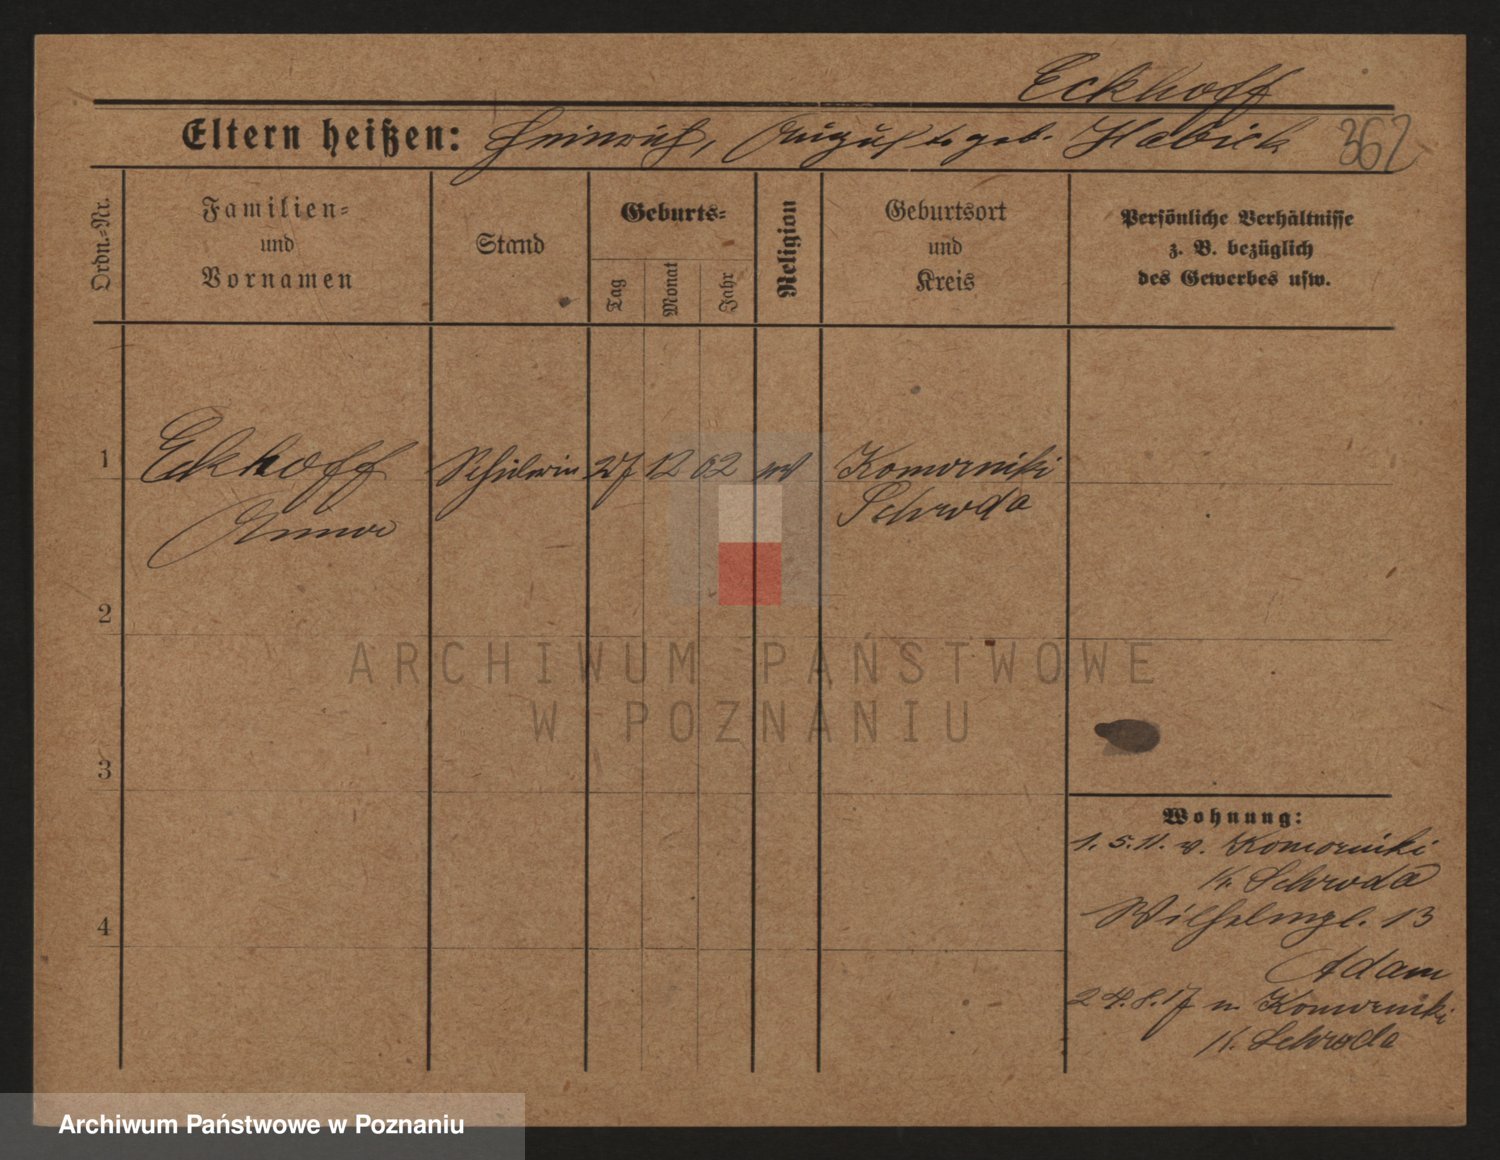 Eckhoff
Eltern heißen: Heinrich, Auguste geb. Habick
362
Ordn.-Nr.
Familien-
und
Vornamen
Stand
Geburts-
Tag
Monat
Jahr
Religion
Geburtsort
und
Kreis
Persönliche Verhältnisse
z. B. bezüglich
des Gewerbes usw.
1
Eckhoff Schülerin 27 12 02 ev Komorniki
Anna
Schroda
2
ARCHIWUM PAŃSTWOWE
W POZNANIU
3
Wohnung:
1. 5. 11. v. Komorniki
Kr. Schroda
4
Wilhelmpl. 13
Adam
24. 8. 17 n Komorniki
K. Schroda
Archiwum Państwowe w Poznaniu